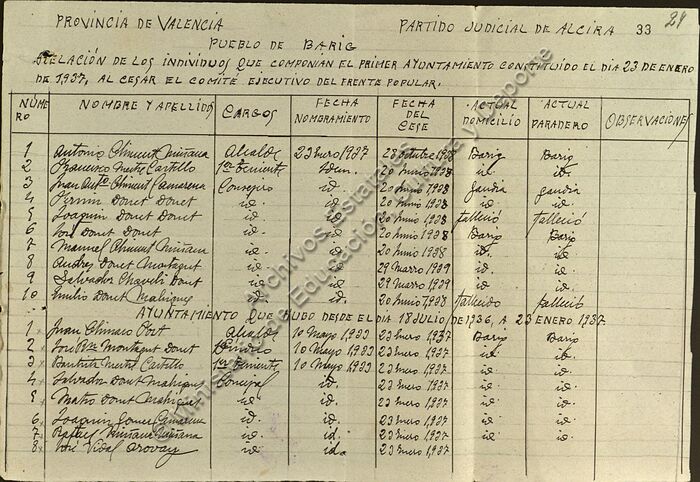 PROVINCIA DE VALENCIA PARTIDO JUDICIAL DE ALCIRA 33 24
PUEBLO DE BARIG
RELACIÓN DE LOS INDIVIDUOS QUE COMPONIAN EL PRIMER AYUNTAMIENTO CONSTITUIDO EL DIA 23 DE ENERO
DE 1937, AL CESAR EL COMITÉ EJECUTIVO DEL FRENTE POPULAR.
NÚMERO NOMBRE Y APELLIDOS CARGOS FECHA NOMBRAMIENTO FECHA DEL CESE ACTUAL DOMICILIO ACTUAL PARADERO OBSERVACIONES
1 Antonio Climent Miñana Alcalde 23 Enero 1937 23 octubre Barig Barig
2 Francisco Castillo 1er Teniente Idem. 20 Junio 1938 id. id.
3 Juan Climent Camarena Consejero id. 20 Junio 1938 Gandia Gandia
4 Fermin Donet Donet id. id. 20 Junio 1938 id. id.
5 Joaquin Donet Donet id. id. 20 Junio 1938 Falleció Falleció
6 José Donet Donet id. id. 20 Junio 1938 Barig Barig
7 Manuel Climent Miñana id. id. 20 Junio 1938 id. id.
8 Andres Donet Montagut id. id. 29 Marzo 1939 id. id.
9 Salvador id. id. 29 Marzo 1939 id. id.
10 Emilio Donet Mahiques id. id. 20 Junio 1938 Fallecido Falleció
AYUNTAMIENTO QUE HUBO DESDE EL DIA 18 JULIO DE 1936, A 23 ENERO 1937.
1 Juan Alcalde 10 Mayo 1933 23 Enero 1937 Barig Barig
2 José Montagut Donet Sindico 10 Mayo 1933 23 Enero 1937 id. id.
3 Bautista Castillo 1er Teniente 10 Mayo 1933 23 Enero 1937 id. id.
4 Salvador Donet Mahiques Concejal id. 23 Enero 1937 id. id.
5 Donet Mahiques id. id. 23 Enero 1937 id. id.
6 Joaquin Gomez Camarena id. id. 23 Enero 1937 id. id.
7 Rafael Miñana Miñana id. id. 23 Enero 1937 id. id.
8 José Vidal id. id. 23 Enero 1937 id. id.